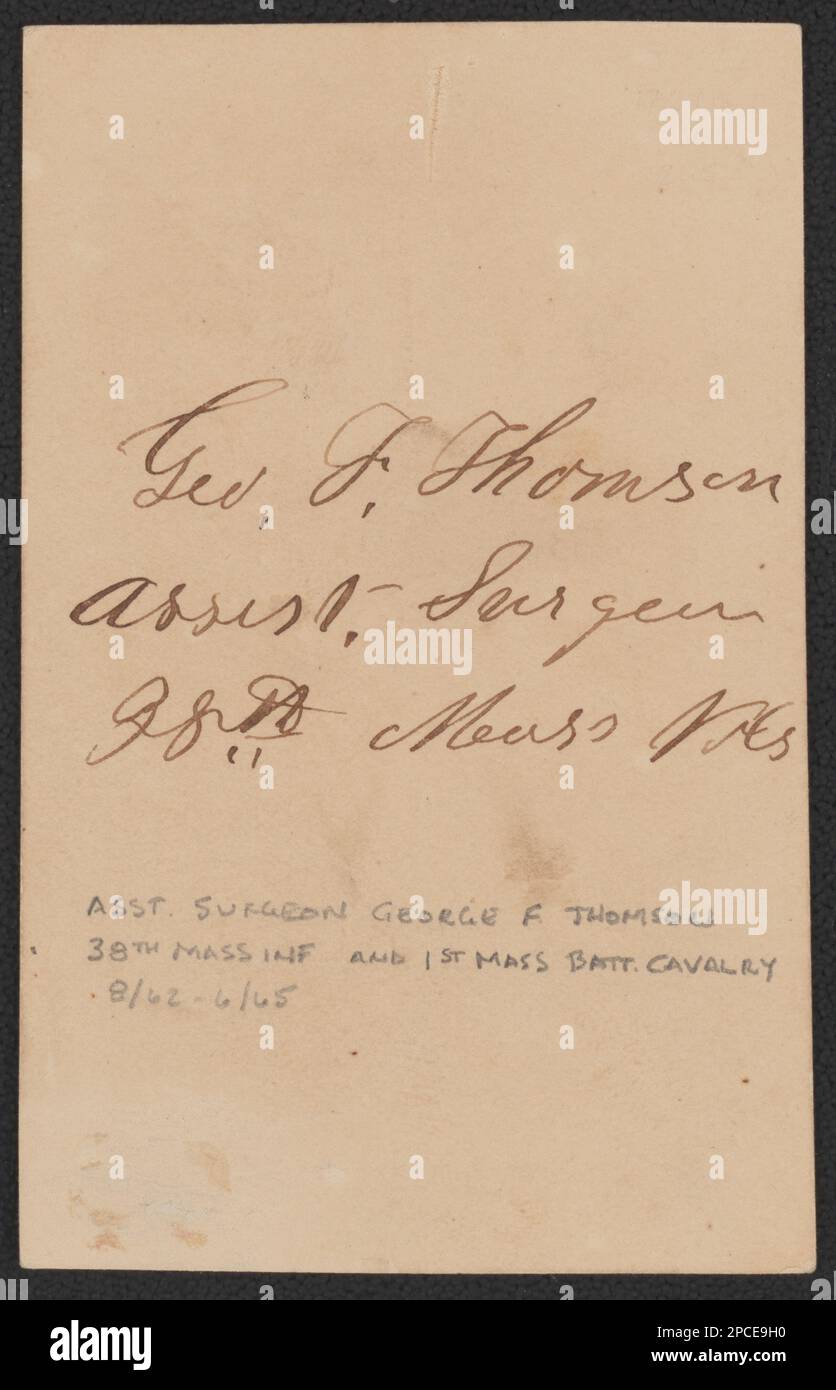 Geo. F. Thomson
Assist. Surgeon
38th Mass Vols
ASST. SURGEON GEORGE F. THOMSON
38TH MASS INF AND 1ST MASS BATT. CAVALRY
8/62 - 6/65
alamy
alamy
alamy
a
alamy
Image ID: 2PCE9H0
www.alamy.com